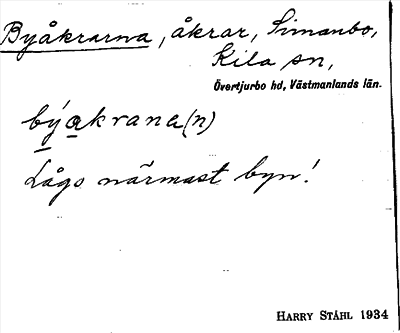 Byåkrarna, åkrar, Simanbo,
Kila sn,
Övertjurbo hd, Västmanlands län.
býakrana(n)
Lågo närmast byn!
HARRY STÅHL 1934